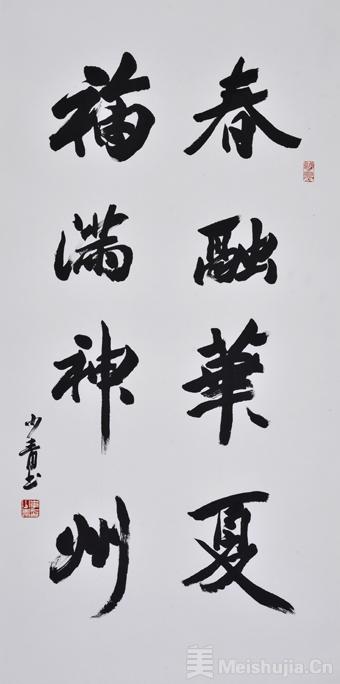 春融華夏
福滿神州
少青书
美 Meishujia.Cn